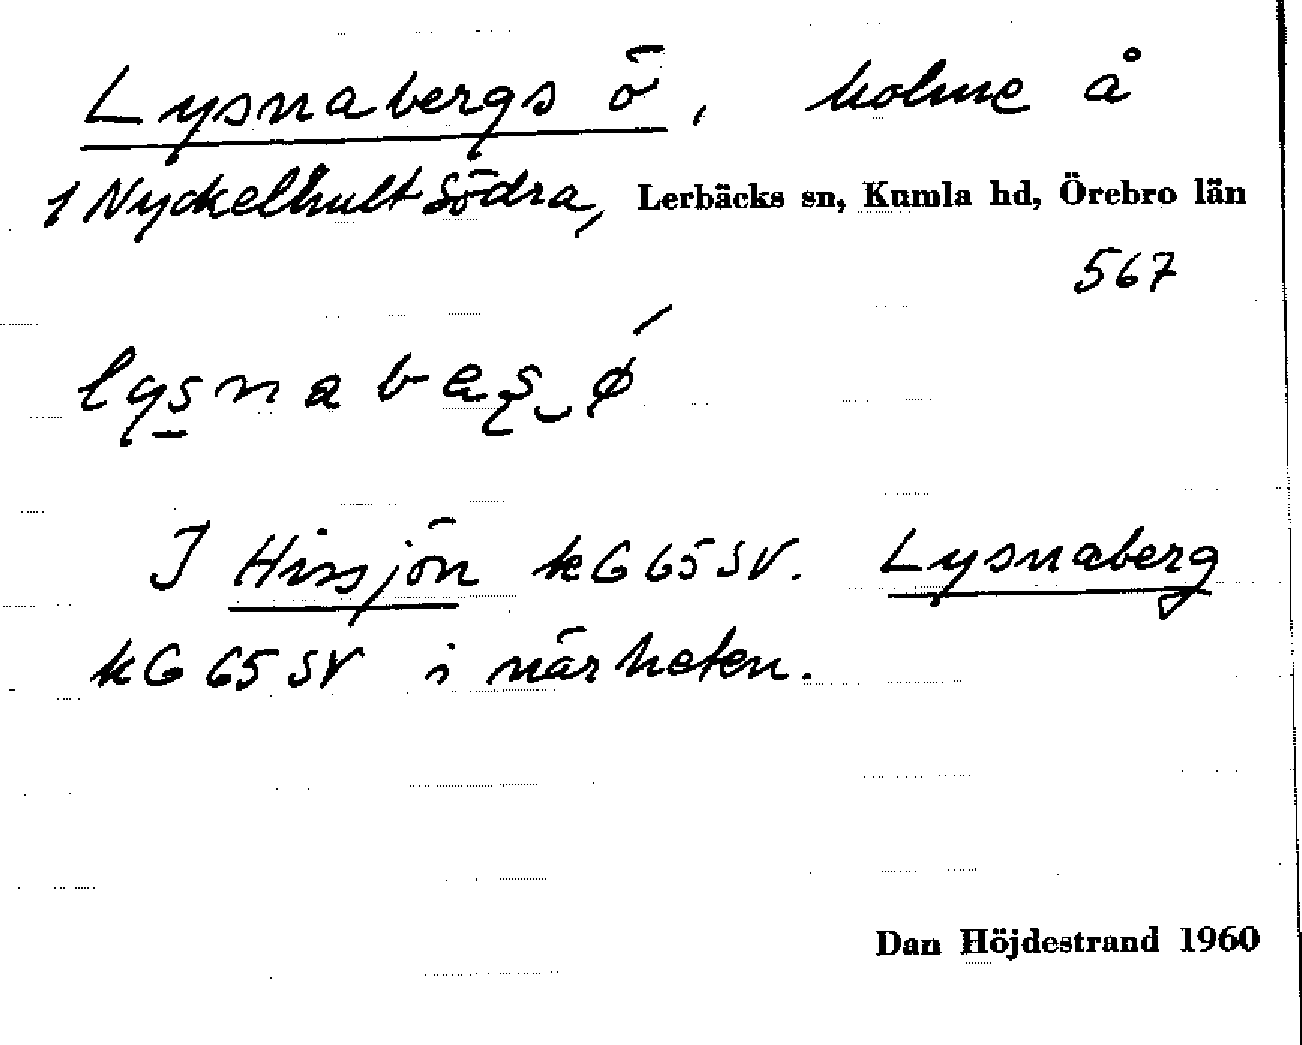 Lysnabergs ö, holme å
1 Nyckelhult Södra, Lerbäcks sn, Kumla hd, Örebro län
567
I Hissjön kG 65 SV. Lysnaberg
kG 65 SV i närheten.
Dan Höjdestrand 1960